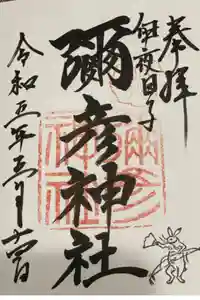 奉拝
伊夜日子
彌彦神社
令和五年五月十四日